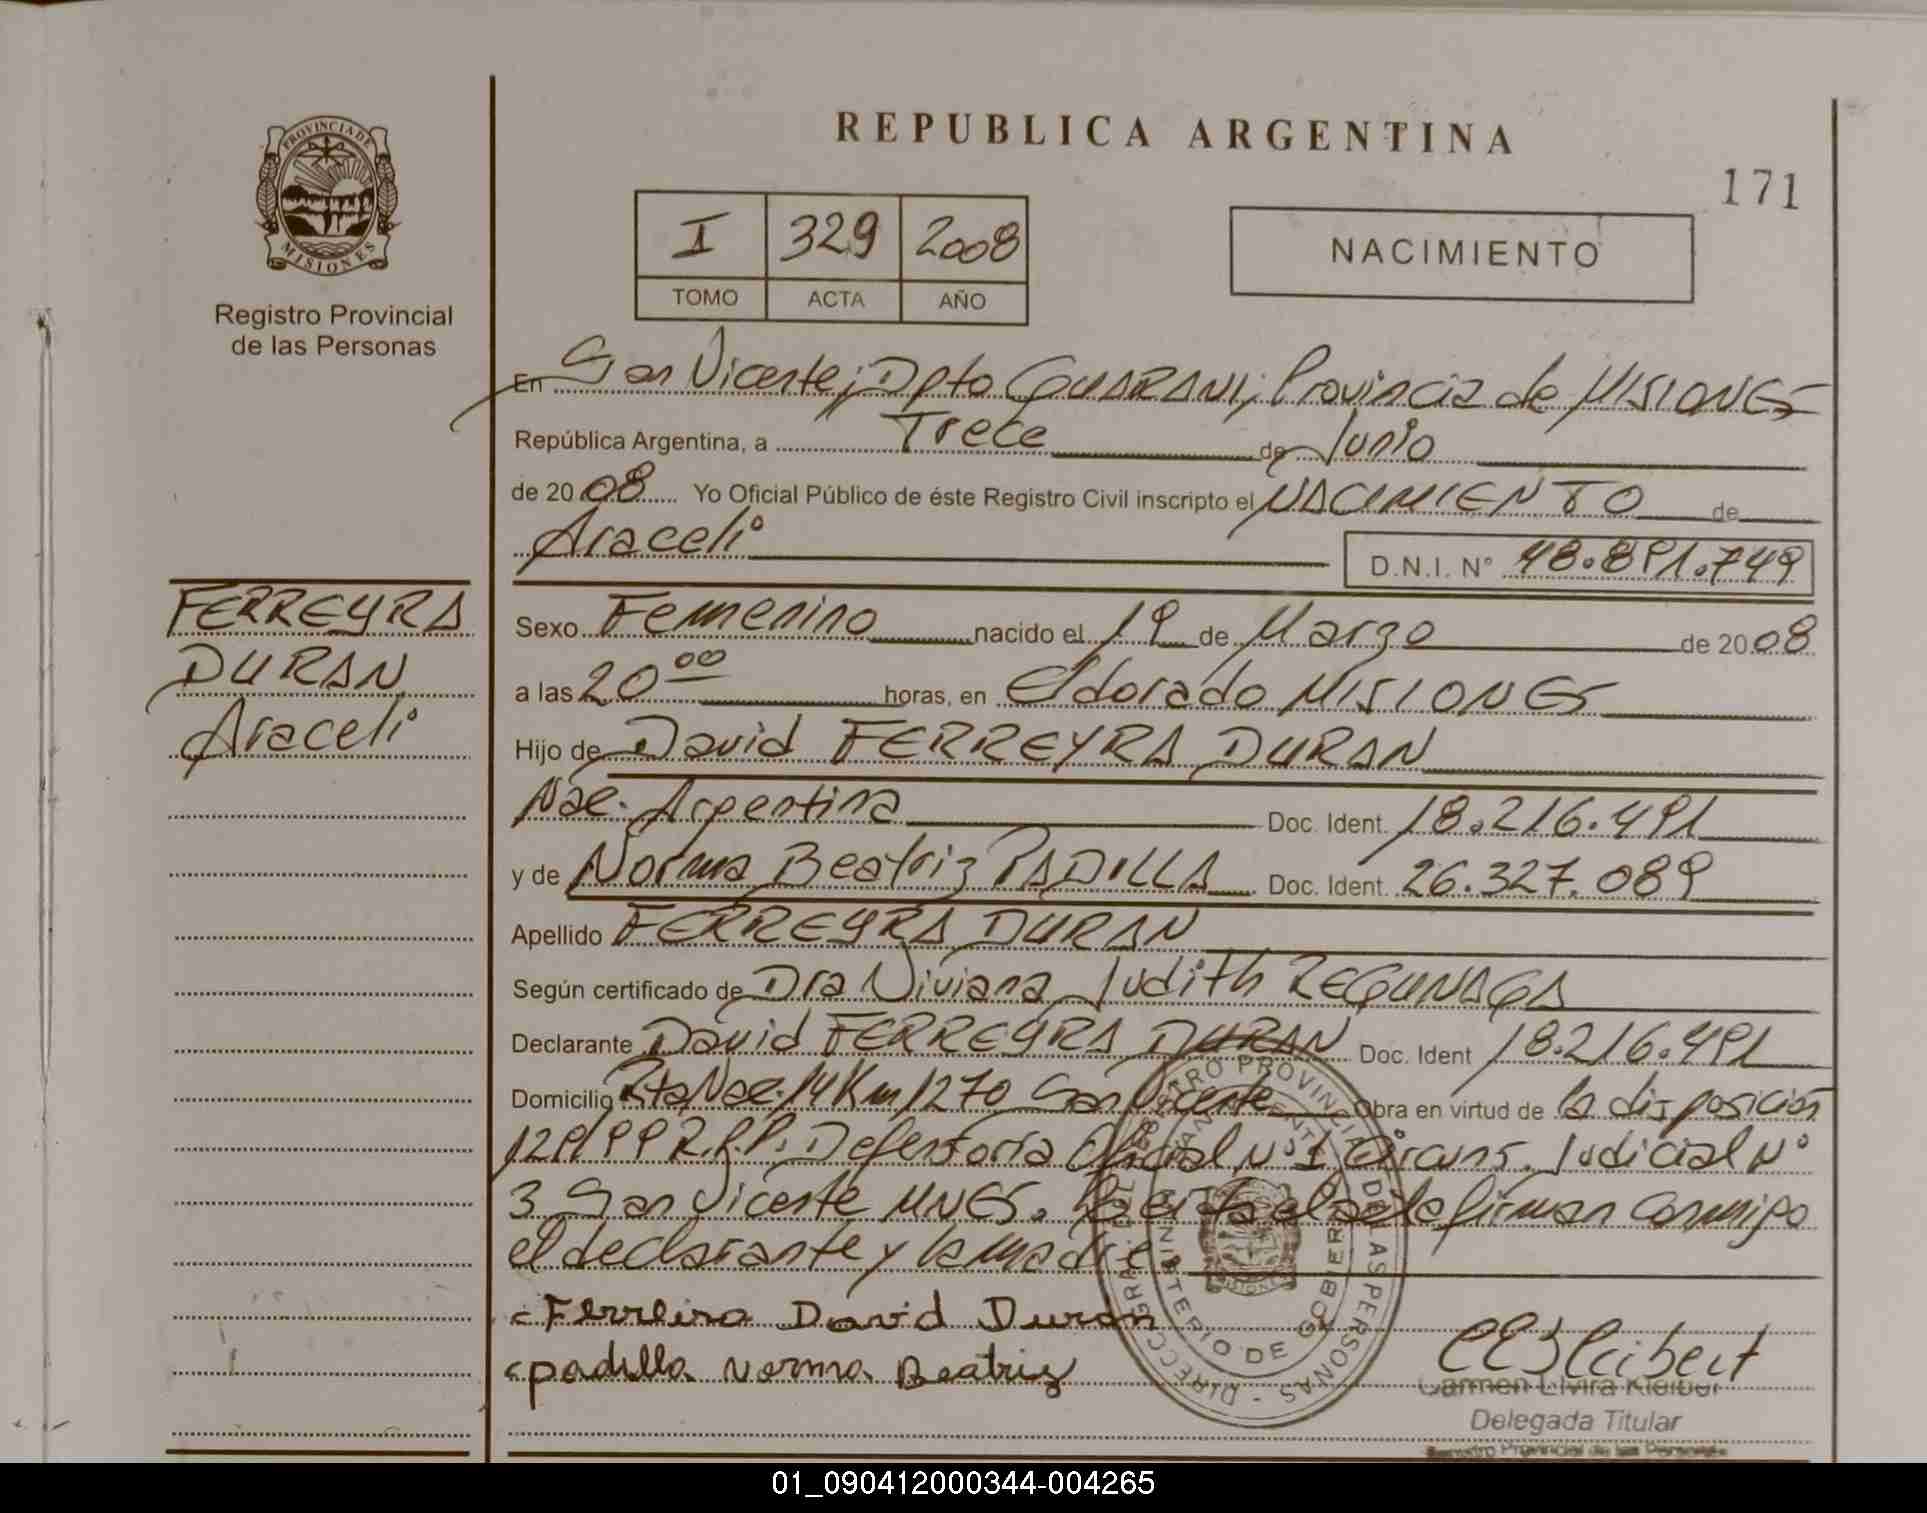 PROVINCIA DE
MISIONES
Registro Provincial
de las Personas
REPUBLICA ARGENTINA
171
I 329 2008
TOMO ACTA AÑO
NACIMIENTO
En San Vicente; Dpto GUARANI; Provincia de MISIONES
República Argentina, a Trece de Junio
de 2008 Yo Oficial Público de éste Registro Civil inscripto el NACIMIENTO de
Araceli
D.N.I. N° 48.891.749
FERREYRA
DURAN
Araceli
Sexo Femenino nacido el 19 de Marzo de 2008
a las 20 00 horas, en Eldorado MISIONES
Hijo de David FERREYRA DURAN
Nac. Argentina Doc. Ident. 18.216.491
y de Norma Beatriz PADILLA Doc. Ident. 26.327.089
Apellido FERREYRA DURAN
Según certificado de Dra Viviana Judith REGUNAGA
Declarante David FERREYRA DURAN Doc. Ident 18.216.491
Domicilio Rta Nac. 14 Km 1270 San Vicente Obra en virtud de la disposición
R.P.P. Defensoria Oficial N° 1 Circuns. Judicial N°
3 San Vicente MNES. el acta firman conmigo
el declarante y la madre.
Ferreira David Duran
padilla Norma Beatriz
DIRECC. GRAL. DEL REGISTRO PROVINCIAL DE LAS PERSONAS
MINISTERIO DE GOBIERNO
Carmen Elvira Kleibert
Delegada Titular
Registro Provincial de las Personas
01_090412000344-004265